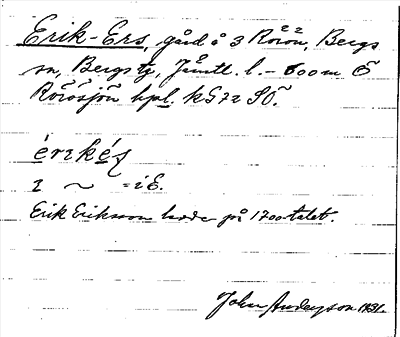 Erik-Ers, gård å 3 Rörön, Bergs
sn, Bergs tg, Jämtl. l. - 600 m Ö
Rörösjön hpl.
érikés
Erik Eriksson bodde på 1700-talet.
John Anderzson 1931.